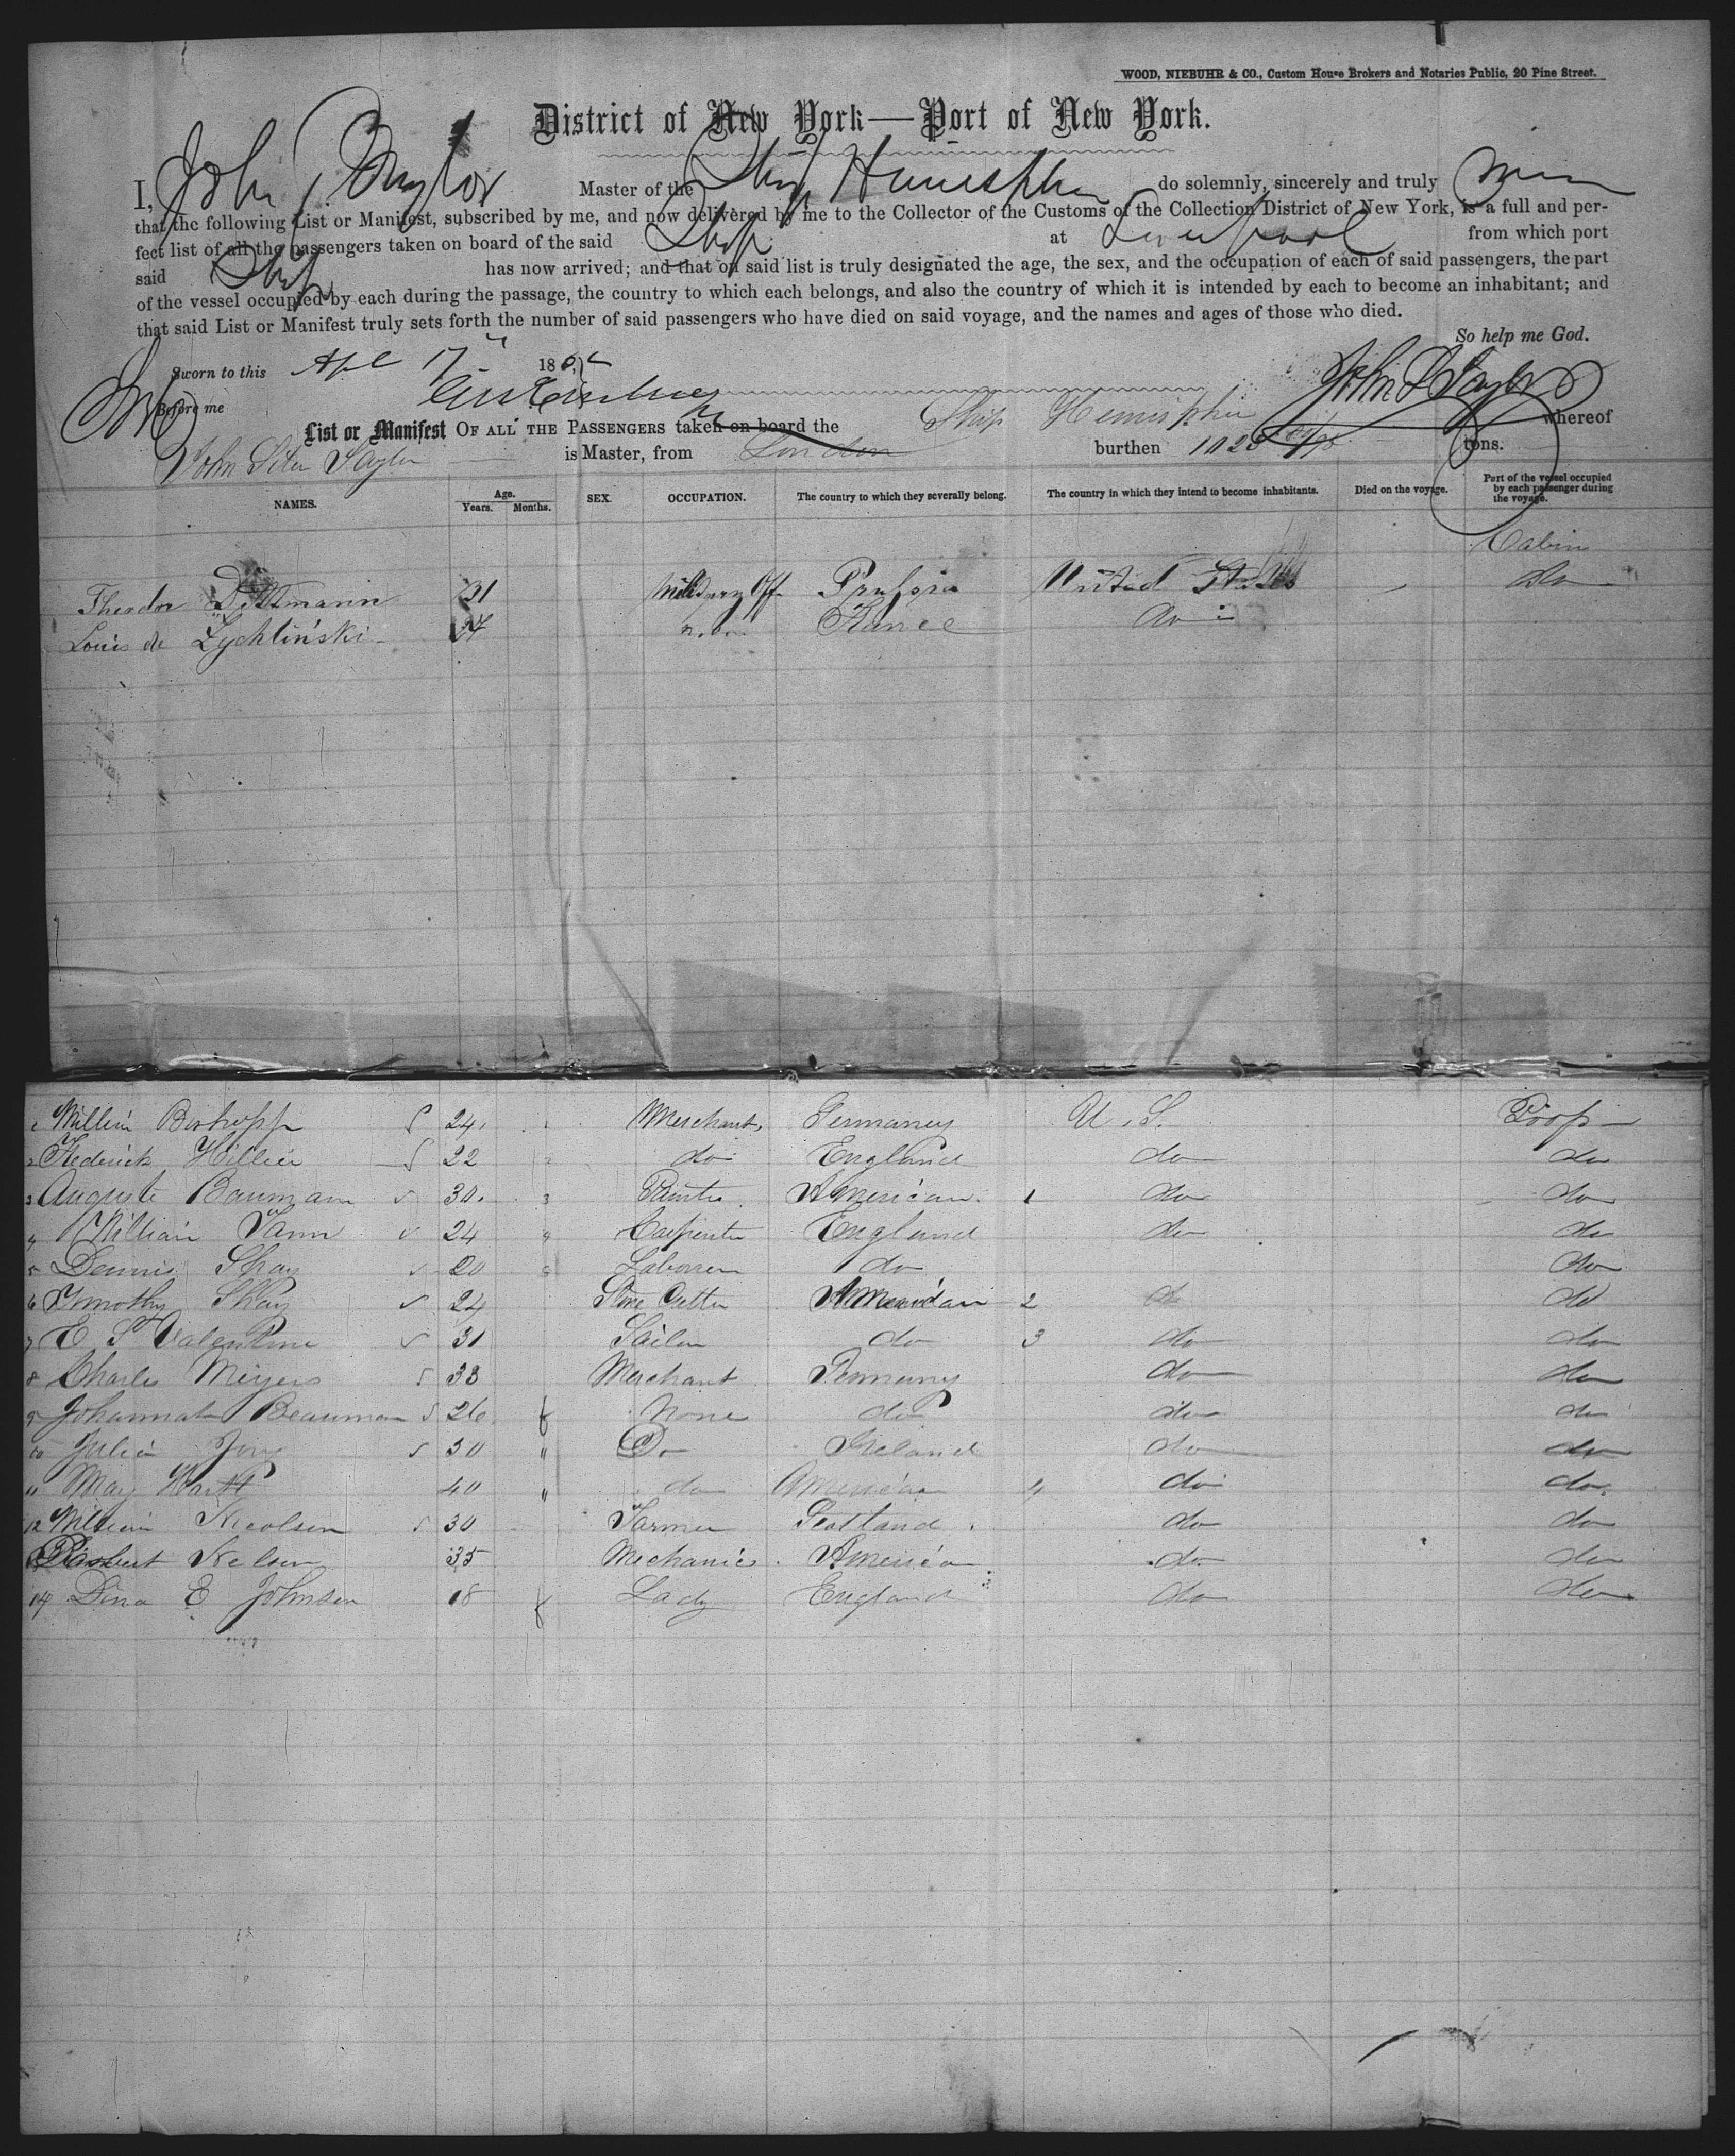 WOOD, NIEBUHR & CO., Custom House Brokers and Notaries Public, 20 Pine Street.
District of New York—Port of New York.
I, John Taylor Master of the Ship Hemisphere do solemnly, sincerely and truly
that the following List or Manifest, subscribed by me, and now delivered by me to the Collector of the Customs of the Collection District of New York, is a full and per-
fect list of all the passengers taken on board of the said Ship at Liverpool from which port
said Ship has now arrived; and that on said list is truly designated the age, the sex, and the occupation of each of said passengers, the part
of the vessel occupied by each during the passage, the country to which each belongs, and also the country of which it is intended by each to become an inhabitant; and
that said List or Manifest truly sets forth the number of said passengers who have died on said voyage, and the names and ages of those who died.
So help me God.
Sworn to this Apl 17 186
John Taylor
Before me
List or Manifest OF ALL THE PASSENGERS taken on board the Ship Hemisphere whereof
John Taylor is Master, from London burthen tons.
NAMES. Age. Years. Months. SEX. OCCUPATION. The country to which they severally belong. The country in which they intend to become inhabitants. Died on the voyage. Part of the vessel occupied by each passenger during the voyage.
Cabin
Theodor Dittmann 31 Military Off. Prussia United States do
Louis de Zychlinski France do
1 William 24 Merchant Germany U.S. Poop
2 Frederick Hillier 22 do England do do
3 Auguste Baumann 30 3 Painter American 1 do do
4 William Vann 24 4 Carpenter England do do
5 Dennis Shay 20 5 Laborer do do
6 Tymothy Shay 24 Stone Cutter American 2 do do
7 E S Valentine 31 Sailor do 3 do do
8 Charles Meyers 33 Merchant Germany do do
9 Johannah Beauman 26 f None do do do
10 Julia 30 " Do Ireland do do
11 Mary Hartt 40 " do American 4 do do
12 William Nicolson 30 Farmer Scotland do do
Robert Nelson 35 Mechanic America do do
14 Dina E Johnson 18 f Lady England do do